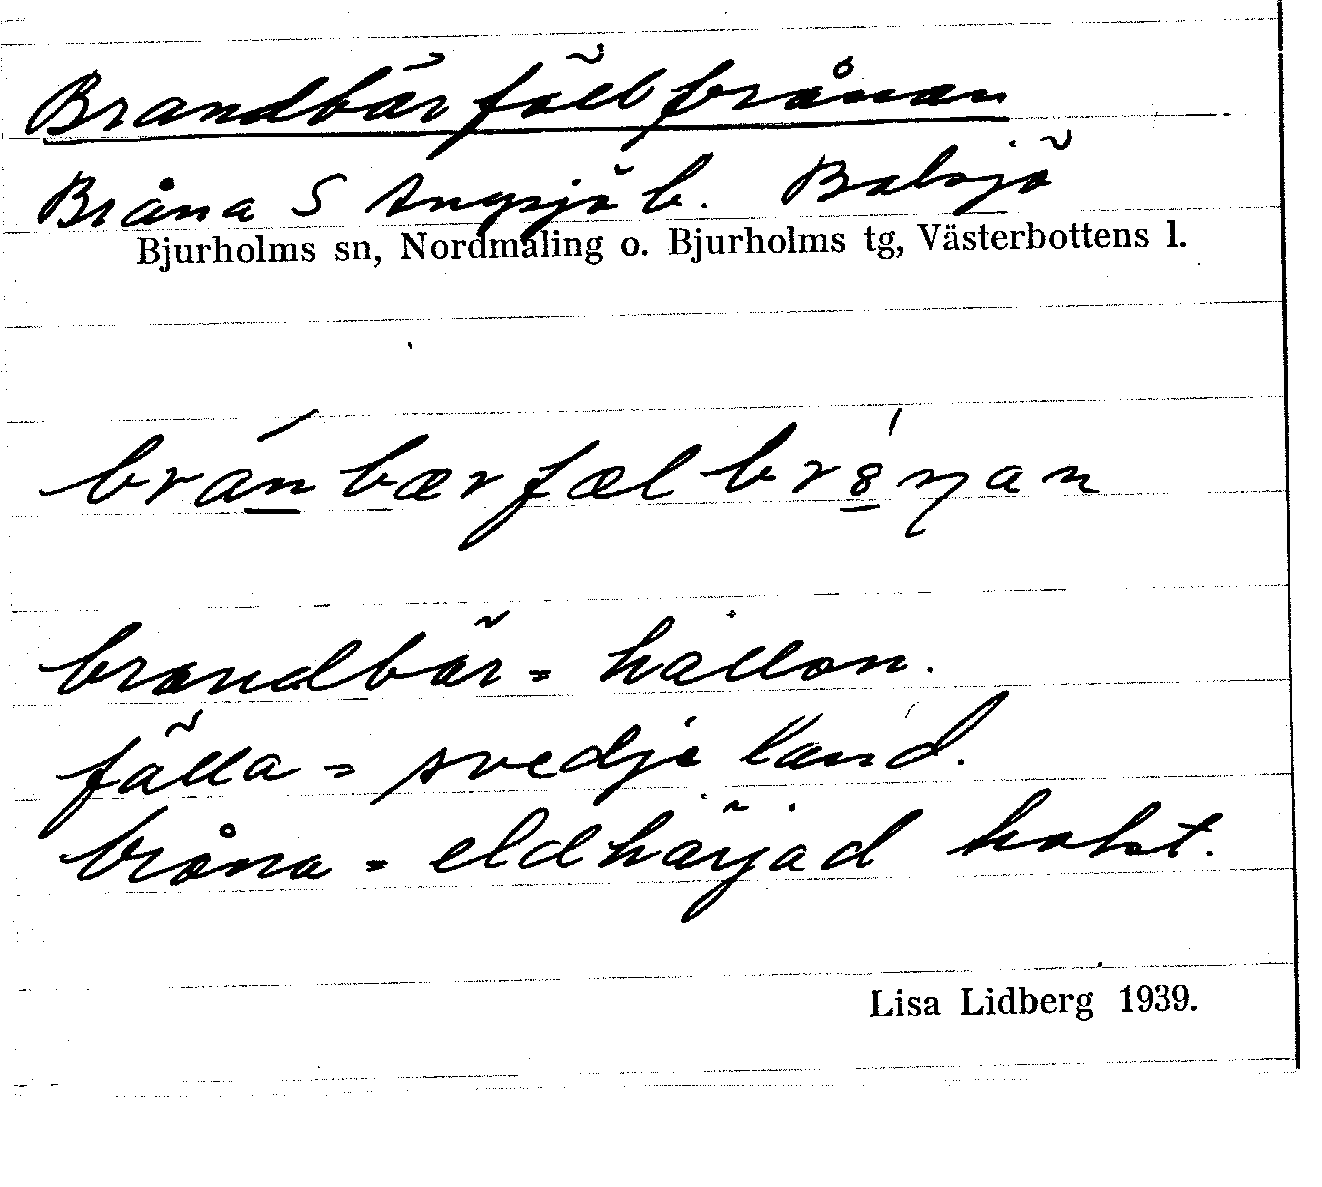 Brandbärfällbrånan
Bråna S Angsjö b. Balsjö
Bjurholms sn, Nordmaling o. Bjurholms tg, Västerbottens l.
bran bær fæl br8ṇan
brandbär = hallon.
fälla = svedje land.
bråna = eldhärjad trakt.
Lisa Lidberg 1939.